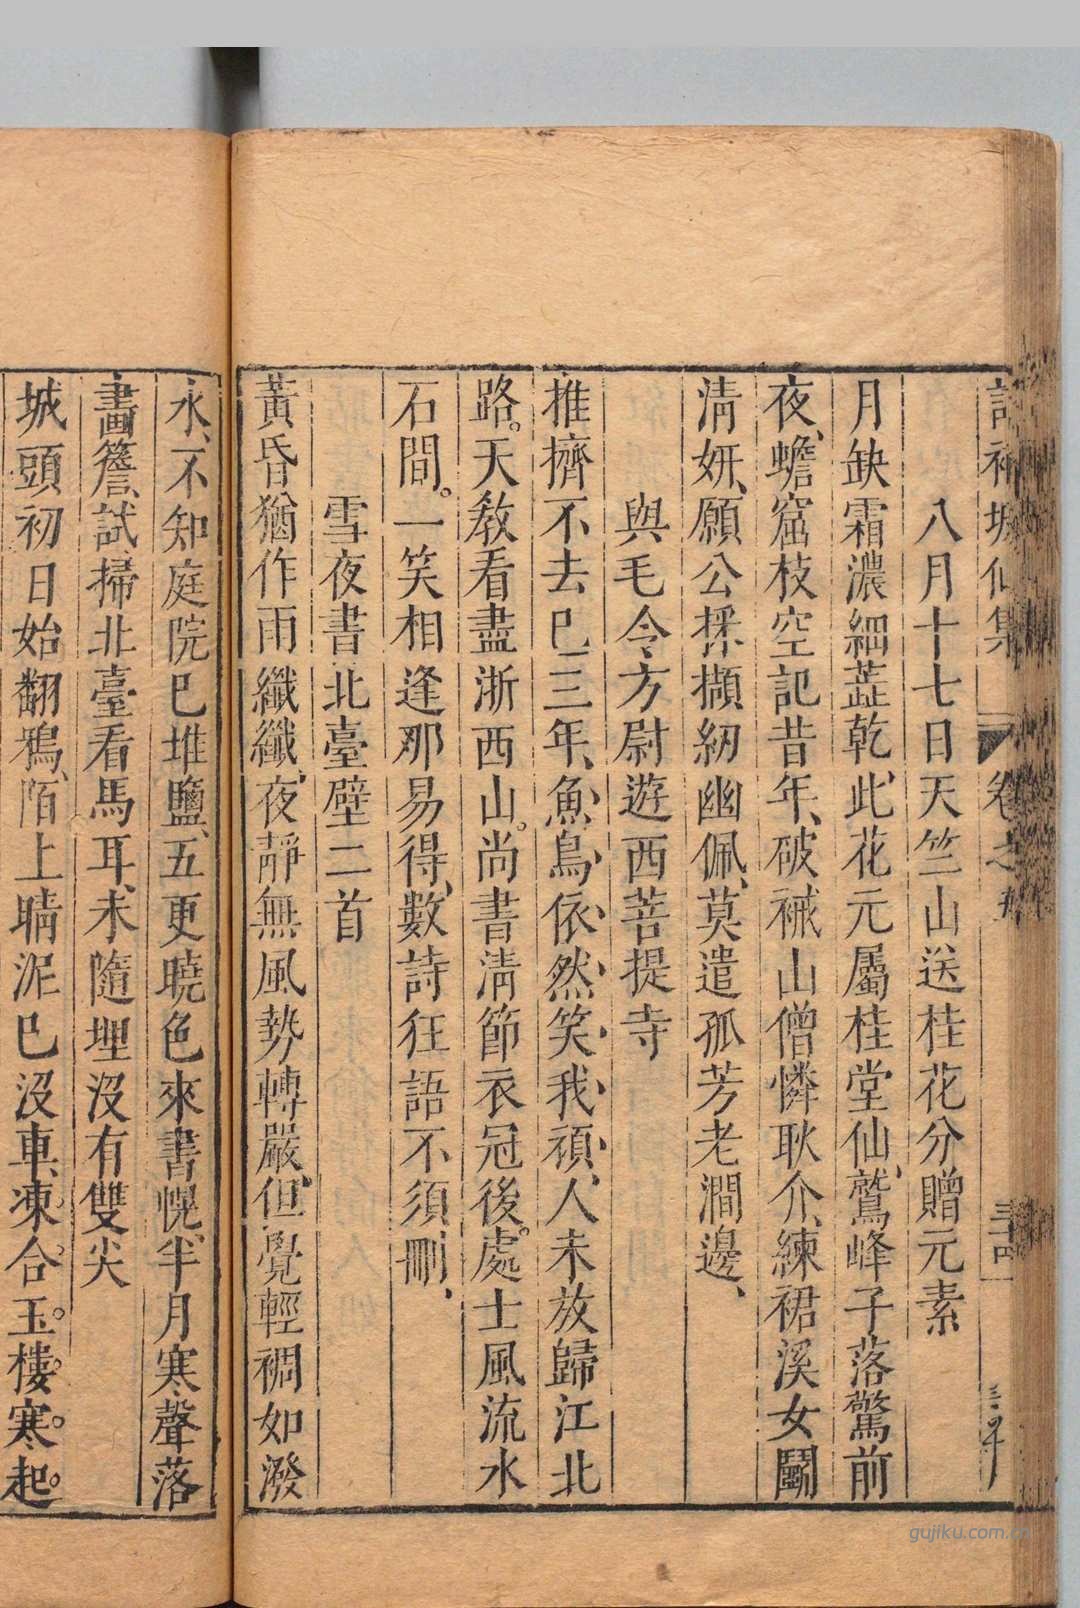 詩神坡仙集 卷之九 三十四
八月十七日天竺山送桂花分贈元素
月缺霜濃細蕋乾、此花元屬桂堂仙、鷲峰子落驚前
夜、蟾窟枝空記昔年、破裓山僧憐耿介、練裙溪女鬭
清妍、願公採擷紉幽佩、莫遣孤芳老澗邊、
與毛令方尉遊西菩提寺
推擠不去巳三年、魚鳥依然笑我頑、人未放歸江北
路。天敎看盡浙西山。尚書清節衣冠後。處士風流水
石間。一笑相逢那易得、數詩狂語不須刪、
雪夜書北臺壁二首
黃昏猶作雨纖纖、夜靜無風勢轉嚴、但覺輕裯如潑
水、不知庭院巳堆鹽、五更曉色來書幌、半月寒聲落
畫簷、試掃北臺看馬耳、未隨埋沒有雙尖
城頭初日始翻鴉、陌上晴泥巳沒車、凍合。玉。樓。寒。起。
gujiku.com.cn